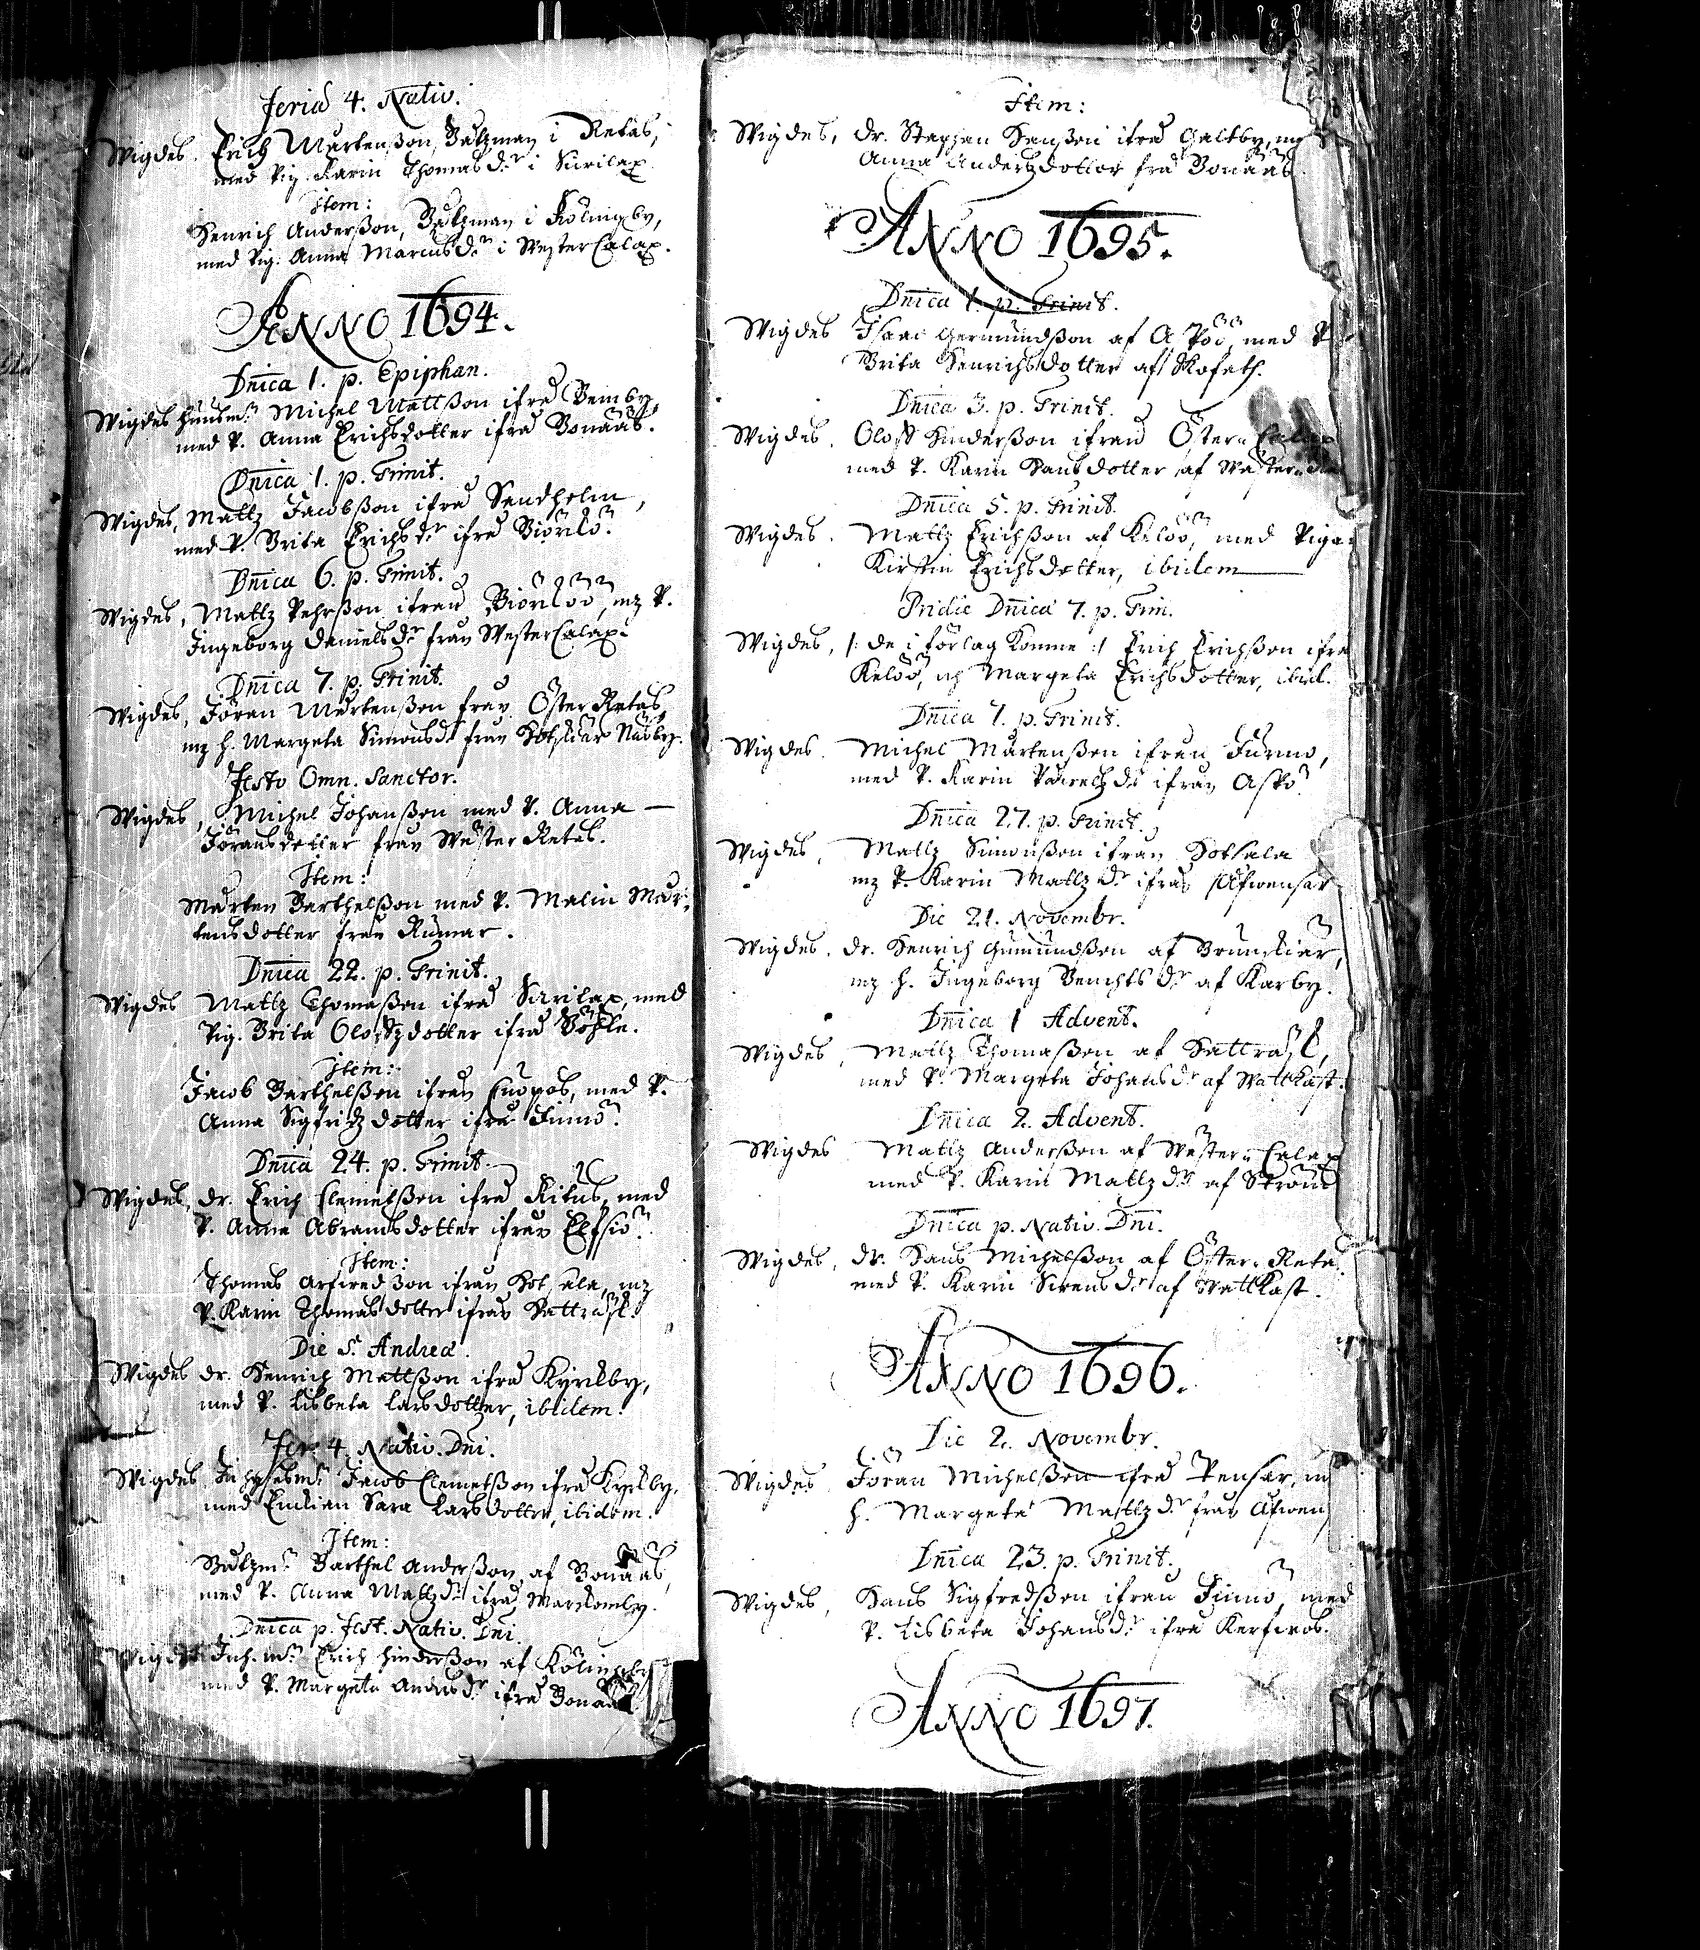 Feria 4. Nativ.
Wigdes. Erich Mårtenßon, Båtzman i Retas,
med Pig. Karin Thomasd:r i Kirilax.
Item:
Henrich Anderßon, Båtzman i Kölingby,
med Pig. Anna Marcusd:r i WesterCalax.
ANNO 1694.
Dnica 1. p. Epiphan.
Wigdes Michel Mattßon ifrå Bemby,
med P. Anna Erichsdotter ifrå Bonäås.
Dnica 1. p. Trinit.
Wigdes, Mattz Jacobßon ifrå Sandholm,
med P. Brita Erichsd:r ifrå Biörkö.
Dnica 6. p. Trinit.
Wigdes, Mattz Pehrßon ifrån Biörköö, mz P.
Ingeborg Danielsd:r från WesterCalax.
Dnica 7. p. Trinit.
Wigdes, Jöran Mårtenßon från ÖsterRetas,
mz h. Margeta Simonsd:r från Näsby.
Festo Omn. Sanctor.
Wigdes, Michel Johanßon med P. Anna
Jöransdotter från WästerRetas.
Item:
Mårten Barthelßon med P. Malin Mår-
tensdotter från Rumar.
Dnica 22. p. Trinit.
Wigdes Mattz Thomaßon ifrå Kirilax, med
Pig. Brita Oloffzdotter ifrå Böhle.
Item:
Jacob Barthelßon ifrån, med P.
Anna Sigfridzdotter ifrå Finnö.
Dnica 24. p. Trinit.
Wigdes, dr. Erich Clemetßon ifrå Kitus, med
P. Anna Abramsdotter ifrån Elfsiö.
Item:
Thomas Arfwedßon ifrån Hotsala, mz
P. Karin Thomasdotter ifrån Kattrask.
Die S. Andreæ.
Wigdes dr. Henrich Mattßon ifrå Kyrkby,
med P. Lisbeta Larsdotter, ibidem.
Fer. 4. Nativ. Dni.
Wigdes Jacob Clemetßon ifrå Kyrkby,
med Sara Larsdotter, ibidem.
Item:
Båtzm:n Barthel Anderßon af Bonäås,
med P. Anna Mattzd:r ifrå
Dnica p. Fest. Nativ. Dni.
Wigdes Erich Hinderßon af Kölingby
med P. Margeta Andersd:r ifrå Bonäås.
Item:
Wigdes, dr. Staphan Hanßon ifrå Galtby, mz
Anna Anderszdotter frå Bonäås.
ANNO 1695.
Dnica 1. p. Trinit.
Wigdes Isaac Germundßon af Aspöö, med P.
Brita Henrichsdotter af
Dnica 3. p. Trinit.
Wigdes. Oloff Hinderßon ifrån Öster-Calax
med P. Karin Hansdotter af Wäster
Dnica 5. p. Trinit.
Wigdes. Mattz Erichßon af Kelöö, med Piga
Kirstin Erichsdotter, ibidem
Pridie Dnicæ 7. p. Trin.
Wigdes, /: de i förlag komme :/ Erich Erichßon ifrå
Kelöö, och Margeta Erichsdotter, ibid.
Dnica 7. p. Trinit.
Wigdes. Michel Mårtenßon ifrån Jurmo,
med P. Karin d:r ifrån Aspö.
Dnica 27. p. Trinit.
Wigdes, Mattz Simonßon ifrån Hotsala
mz P. Karin Mattzd:r ifrån Afwensar
Die 21. Novembr.
Wigdes. dr. Henrich Gumundßon af Brunskiär,
mz h. Ingeborg Benchtsd:r af Karby.
Dnica 1 Advent.
Wigdes, Mattz Thomaßon af Kattrask,
med P. Margeta Johansd:r af Wattkast.
Dnica 2. Advent.
Wigdes Mattz Anderßon af Wäster-Calax
med P. Karin Mattzd:r af Ström
Dnica p. Nativ. Dni.
Wigdes, dr. Hans Michelßon af Öster-Reta
med P. Karin Sirensd:r af Wattkast.
ANNO 1696.
Die 2. Novembr.
Wigdes Jöran Michelßon ifrå Pensar, mz
h. Margeta Mattzd:r från Afwen
Dnica 23. p. Trinit.
Wigdes, Hans Sigfredßon ifrån Finnö, med
P. Lisbeta Johansd:r ifrå
ANNO 1697.